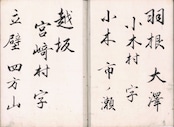 羽根 大澤
小木村 字
小木 市ノ瀬
越坂
宮崎村 字
立壁 四方山